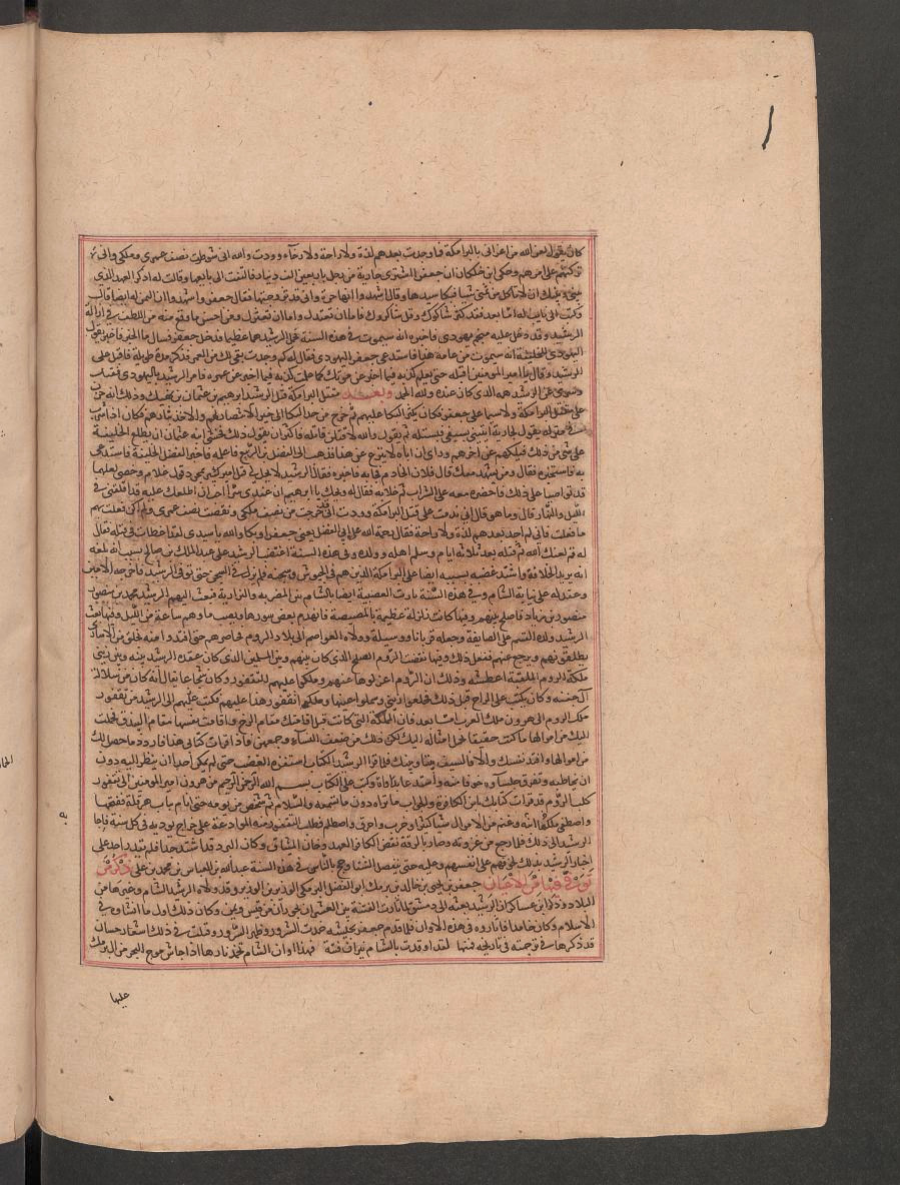 كان يقول لعن الله من اغراني بالبرامكة فما وجدت بعدهم لذة ولا راحة ولا رخاء وودت والله اني شوطرت نصف عمري وملكي واني
تركتهم على امرهم وحكى ابن خلكان ان جعفر اشترى جارية من رجل باربعين الف دينار فالتفتت الى بايعها وقالت له اذكر العهد الذي
بيني وبينك ان لا تاكل من ثمني شيا فبكا سيدها وقال اشهدوا انها حرة واني قد تزوجتها فقال جعفر واشهدوا ان الثمن له ايضا قال
وكتب الى نايب له اما بعد فقد كثر شاكوك وقل شاكروك فاما ان تعتدل واما ان تعتزل ومن احسن ما وقع منه من التلطف في ازالة
الرشيد وقد دخل عليه منجم يهودي فاخبره انه سيموت في هذه السنة فحمل الرشيد هما عظيما فدخل جعفر فسال ما الخبر فاخبر بقول
اليهودي للخليفة انه سيموت من عامه هذا فاستدعى جعفر اليهودي فقال له كم وجدت بقي لك من العمر فذكر مدة طويلة فاقبل على
الرشيد وقال يا امير المومنين اقتله حتى تعلم كذبه فيما اخبر عن موتك كما علمت كذبه فيما اخبر عن عمره فامر الرشيد باليهودي فقتل
وسري عن الرشيد همه الذي كان عنده ولله الحمد وبعد مقتل البرامكة قتل الرشيد ابرهيم بن عثمان بن نهيك وذلك انه حزن
على مقتل البرامكة ولا سيما على جعفر فكان يكثر البكا عليهم ثم خرج من حد البكا الى حيز الانتصار لهم والاخذ بثارهم فكان اذا شرب
في منزله يقول لجاريته ايتيني بسيفي فيستله ثم يقول والله لاقتلن قاتله فاكثر ان يقول ذلك فخشي ابنه عثمان ان يطلع الخليفة
على شي من ذلك فيهلكهم عن اخرهم وراى ان اباه لا ينزع عن هذا فذهب الى الفضل بن الربيع فاعلمه فاخبر الفضل الخليفة فاستدعى
به فاستخبره فقال ومن يشهد معك قال فلان الخادم فجا به فاخبره فقال الرشيد لا يحل لي قتل امير كبير بمجرد قول غلام وخصي لعلهما
قد تواصيا على ذلك فاحضره معه على الشراب ثم خلا به فقال له ويحك يا ابرهيم ان عندي سرا احب ان اطلعك عليه قد اقلقني في
الليل والنهار قال وما هو قال اني ندمت على قتل البرامكة ووددت اني خرجت من نصف ملكي ونقصت نصف عمري ولم اكن فعلت بهم
ما فعلت فاني لم اجد بعدهم لذة ولا راحة فقال رحمة الله على ابي الفضل يعني جعفر وبكا والله يا سيدي لقد اخطات في قتله فقال
له قم لعنك الله ثم قتله بعد ثلاثة ايام وسلم اهله وولده وفي هذه السنة غضب الرشيد على عبد الملك بن صالح بسبب انه بلغه
انه يريد الخلافة واشتد غضبه بسببه ايضا على البرامكة الذين هم في الحبوس وسجنه فلم يزل في السجن حتى توفي الرشيد فاخرجه الامين
وعقد له على نيابة الشام وفي هذه السنة ثارت العصبية ايضا بالشام بين المضرية والنزارية فبعث اليهم الرشيد محمد بن منصور
منصور بن زياد فاصلح بينهم وفيها كانت زلزلة عظيمة بالمصيصة فانهدم بعض سورها ونضب ماوهم ساعة من الليل وفيها بعث
الرشيد ولده القسم على الصايفة وجعله قربانا ووسيلة وولاه العواصم فسار الى بلاد الروم فحاصرهم حتى افتدوا منه بخلق من الاسارى
يطلقونهم ويرجع عنهم ففعل ذلك وفيها نقضت الروم الصلح الذي كان بينهم وبين المسلمين الذي كان عقده الرشيد بينه وبين ريني
ملكة الروم الملقبة اغطسه وذلك ان الروم عزلوها عنهم وملكوا عليهم النقفور وكان شجاعا يقال انه كان من سلالة
آل جفنه وكان يكتب على الخراج قبل ذلك فخلعوا ريني وسملوا عينيها وملكهم نقفور هذا عليهم فكتب ملكهم الى الرشيد من نقفور
ملك الروم الى هرون ملك العرب اما بعد فان الملكة التي كانت قبلي اقامتك مقام الرخ واقامت نفسها مقام البيذق فحملت
اليك من اموالها ما كنت حقيقا بحمل امثاله اليك لكن ذلك من ضعف النساء وحمقهن فاذا قرات كتابي هذا فاردد ما حصل لك
من اموالها وافتد نفسك والا فالسيف بيننا وبينك فلما قرا الرشيد الكتاب استفزه الغضب حتى لم يمكن احدا ان ينظر اليه دون
ان يخاطبه وتفرق جلساوه خوفا منه واستدعا بدواة وكتب على الكتاب بسم الله الرحمن الرحيم من هرون امير المومنين الى نقفور
كلب الروم قد قرات كتابك يا ابن الكافرة والجواب ما تراه دون ما تسمعه والسلام ثم شخص من يومه حتى اناخ بباب هرقلة ففتحها
واصطفى ملكها ابنه وغنم من الاموال شيا كثيرا وخرب واحرق واصطلم فطلب النقفور منه الموادعة على خراج يوديه في كل سنة فاجا
الرشيد الى ذلك فلما رجع من غزوته وصار بالرقة نقض الكافر العهد وخان الميثاق وكان البرد قد اشتد جدا فلم يقدر احد على
اخبار الرشيد بذلك لخوفهم على انفسهم وعليه حتى ينفصل الشتا وحج بالناس في هذه السنة عبد الله بن العباس بن محمد بن علي ذكر من
توفي فيها من الاعيان جعفر بن يحيى بن خالد بن برمك ابو الفضل البرمكي الوزير بن الوزير وقد ولاه الرشيد الشام وغيرها من
البلاد وذكر ابن عساكر ان الرشيد بعثه الى دمشق لما ثارت الفتنة بين العشيران بحوران من قيس ويمن وكان ذلك اول ما نشا في
الاسلام وكان خامدا فاثاروه في هذه الاوان فلما قدم جعفر بجيشه خمدت الشرور وظهر السرور وقيلت في ذلك اشعار حسان
قد ذكرها في ترجمته في تاريخه فمنها لقد اوقدت بالشام نيران فتنة فهذا اوان الشام تخمد نارها اذا جاش موج البحر من ال برمك
عليها